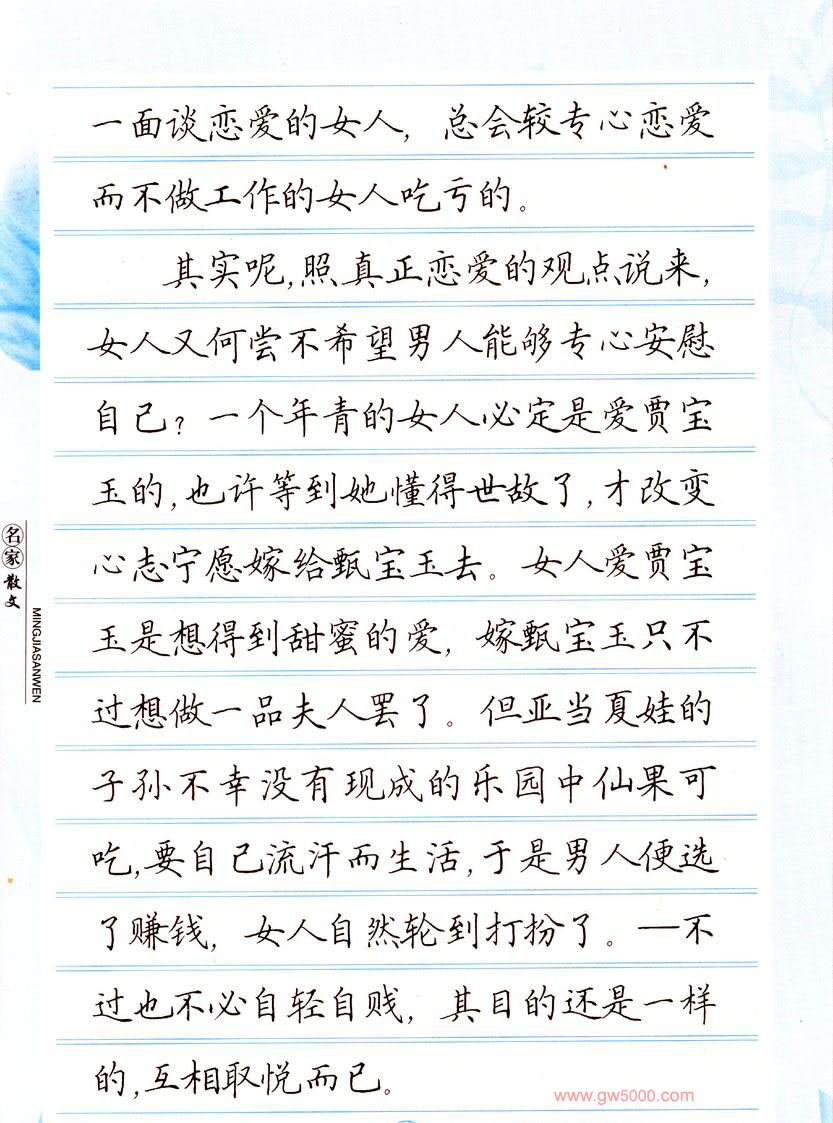 一面谈恋爱的女人，总会较专心恋爱
而不做工作的女人吃亏的。
其实呢，照真正恋爱的观点说来，
女人又何尝不希望男人能够专心安慰
自己？一个年青的女人必定是爱贾宝
玉的，也许等到她懂得世故了，才改变
心志宁愿嫁给甄宝玉去。女人爱贾宝
玉是想得到甜蜜的爱，嫁甄宝玉只不
过想做一品夫人罢了。但亚当夏娃的
子孙不幸没有现成的乐园中仙果可
吃，要自己流汗而生活，于是男人便选
了赚钱，女人自然轮到打扮了。—不
过也不必自轻自贱，其目的还是一样
的，互相取悦而已。
名家散文
MINGJIASANWEN
www.gw5000.com